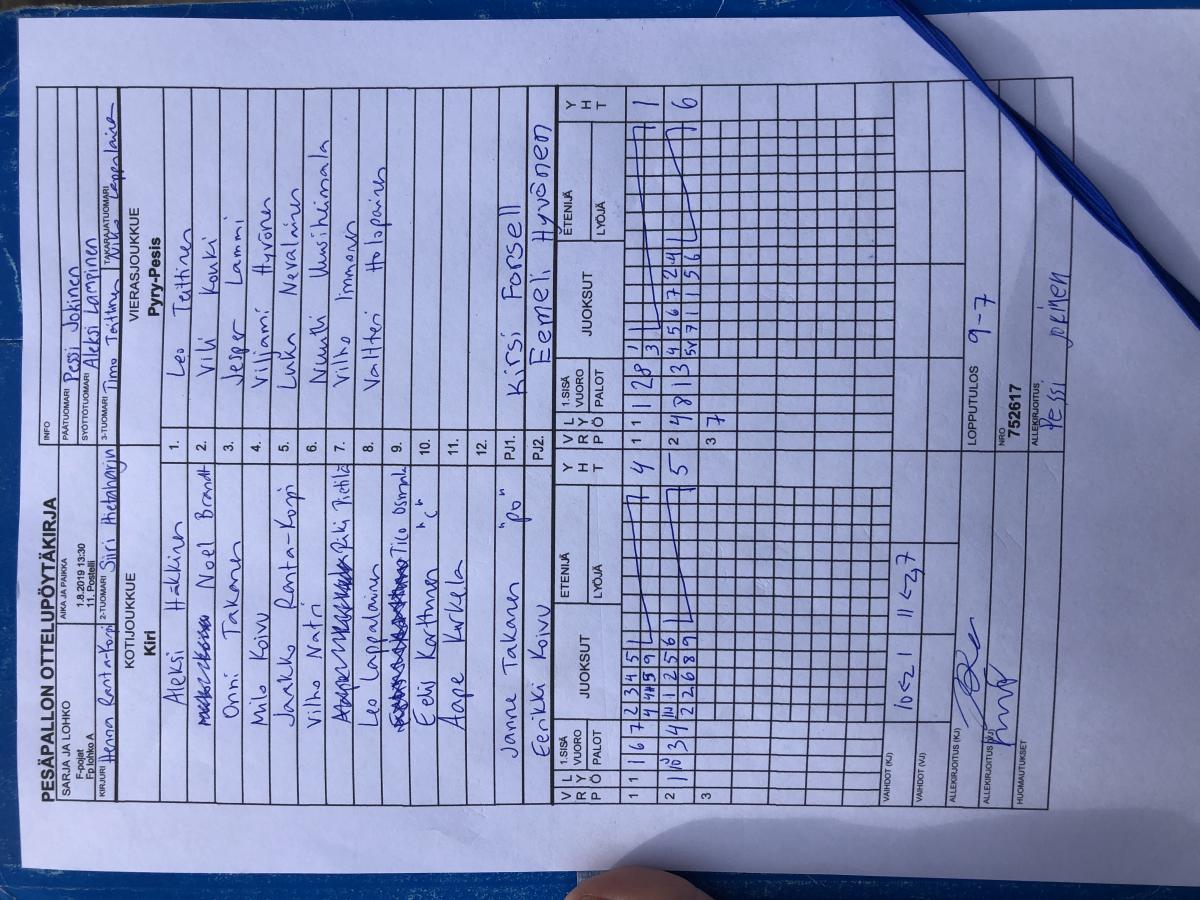 PESÄPALLON OTTELUPÖYTÄKIRJA
SARJA JA LOHKO
F-pojat
Fp lohko A
AIKA JA PAIKKA
1.8.2019 13:30
11. Postelli
INFO
PÄÄTUOMARI Pessi Jokinen
SYÖTTÖTUOMARI Aleksi Lampinen
KIRJURI Henna Ranta-Korpi 2-TUOMARI Siiri Hietaharju 3-TUOMARI Timo Teittinen TAKARAJATUOMARI Niko Lappalainen
KOTIJOUKKUE VIERASJOUKKUE
Kiri Pyry-Pesis
Aleksi Häkkinen 1. Leo Teittinen
Noel Brandt 2. Vili Kouki
Onni Takanen 3. Jesper Lammi
Milo Koivu 4. Viljami Hyvönen
Jaakko Ranta-Korpi 5. Luka Nevalainen
Vilho Natri 6. Nuutti Uusiheimala
Riki Pietilä 7. Vilho Iimonen
Leo Lappalainen 8. Valtteri Holopainen
Tico 9.
Eelis Korttinen "C" 10.
Aape Kurkela 11.
12.
Janne Takanen "po" PJ1. Kirsi Forsell
Eerikki Koivu PJ2. Eemeli Hyvönen
V R P L Y Ö 1.SISÄ VUORO PALOT JUOKSUT ETENIJÄ LYÖJÄ Y H T V R P L Y Ö 1.SISÄ VUORO PALOT JUOKSUT ETENIJÄ LYÖJÄ Y H T
1 1 1 6 7 2 3 4 5 4 1 1 1 2 8 1 1
4 4 5 9 3
2 1 10 3 4 11 1 2 5 6 5 2 4 8 1 3 4 5 6 7 2 4 6
2 2 6 8 9 5V 7 1 1 5 6
3 3 7
VAIHDOT (KJ) 10<2 1 11<2,7
VAIHDOT (VJ)
ALLEKIRJOITUS (KJ)
LOPPUTULOS 9-7
ALLEKIRJOITUS (VJ)
NRO
752617
HUOMAUTUKSET
ALLEKIRJOITUS
Pessi Jokinen